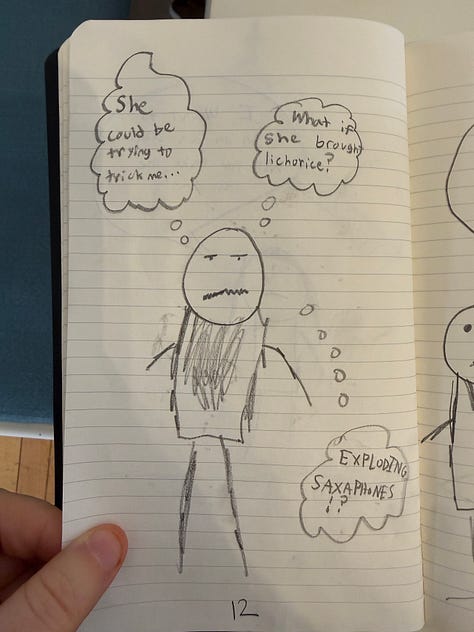 She
could be
trying to
trick me...
What if
she brought
lichorice?
EXPLODING
SAXAPHONES
!?
12